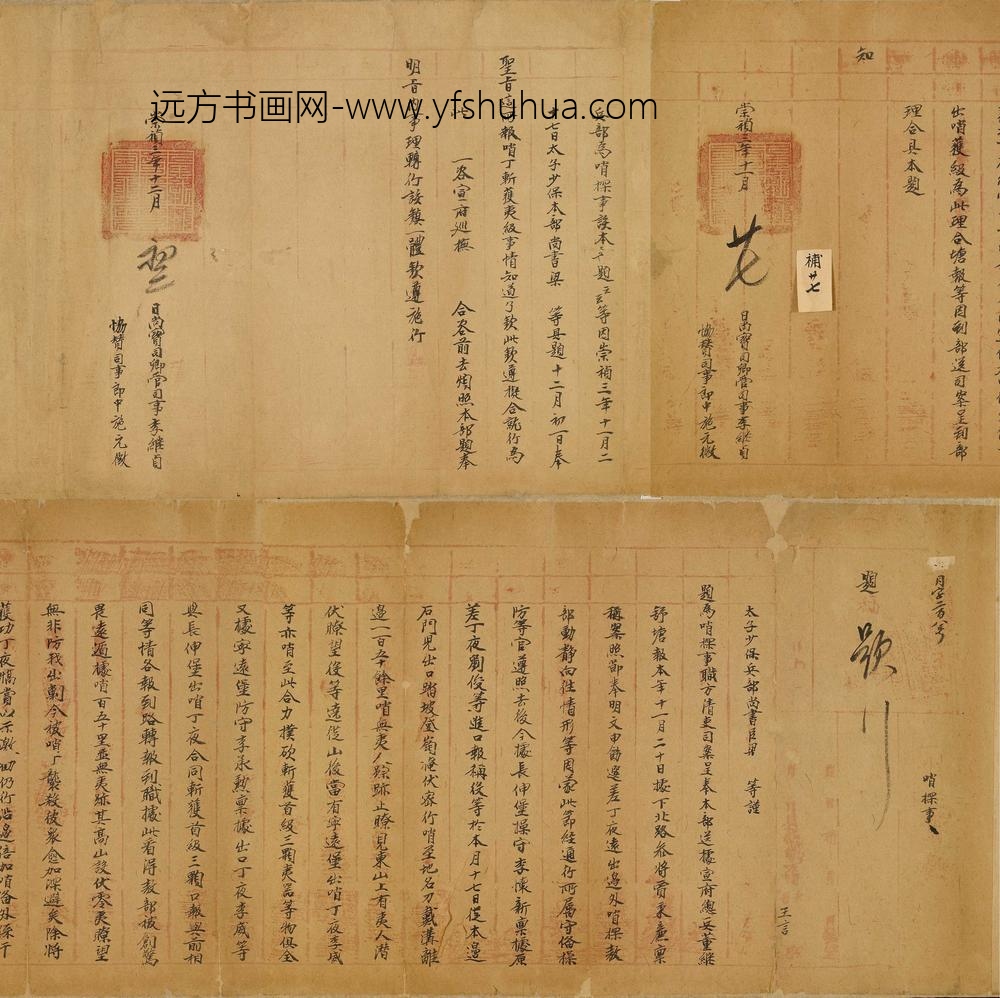 远方书画网-www.yfshuhua.com
兵部為哨探事該本部題云云等因崇禎三年十一月二
十七日太子少保本部尚書梁 等具題十二月初一日奉
聖旨這所報哨丁斬獲夷級事情知道了欽此欽遵擬合就行為
此 一咨宣府巡撫 合咨前去煩照本部題奉
明旨內事理轉行該鎮一體欽遵施行
崇禎三年十二月
日尚寶司卿管司事李維貞
協贊司事郎中施元徵
知
出哨獲級為此理合塘報等因到部送司案呈到部
理合具本題
崇禎三年十一月
廿七
補廿七
日尚寶司卿管司事李維貞
協贊司事郎中施元徵
哨探事
題
行
王言
太子少保兵部尚書臣梁 等謹
題為哨探事職方清吏司案呈奉本部送據宣府總兵董繼
舒塘報本年十一月二十日據下北路參將賈秉廉稟
稱案照節奉明文申飭選差丁夜遠出邊外哨探敖
部動靜向往情形等因蒙此節經通行所屬守備操
防等官遵照去後今據長伸堡操守李懷新稟據原
差丁夜劉俊等進口報稱役等於本月十七日從本邊
石門兒出口踏坡登崗潛伏密行哨至地名刀戴溝離
邊一百五十餘里哨無夷人踪跡止瞭見東山上有夷人潛
伏瞭望役等遠從山後當有寧遠堡出哨丁夜李威
等亦哨至此合力撲砍斬獲首級三顆夷器等物俱全
又據寧遠堡防守李承勲稟據出口丁夜李威等
與長伸堡出哨丁夜合同斬獲首級三顆口報與前相
同等情各報到路轉報到職據此看得敖部被創驚
畏遠遁據哨百五十里並無夷跡其高山設伏零夷瞭望
無非防我出剿今被哨丁襲殺彼衆愈加深避矣除將
獲功丁夜犒賞以示激勸仍行沿邊倍加哨备外緣干